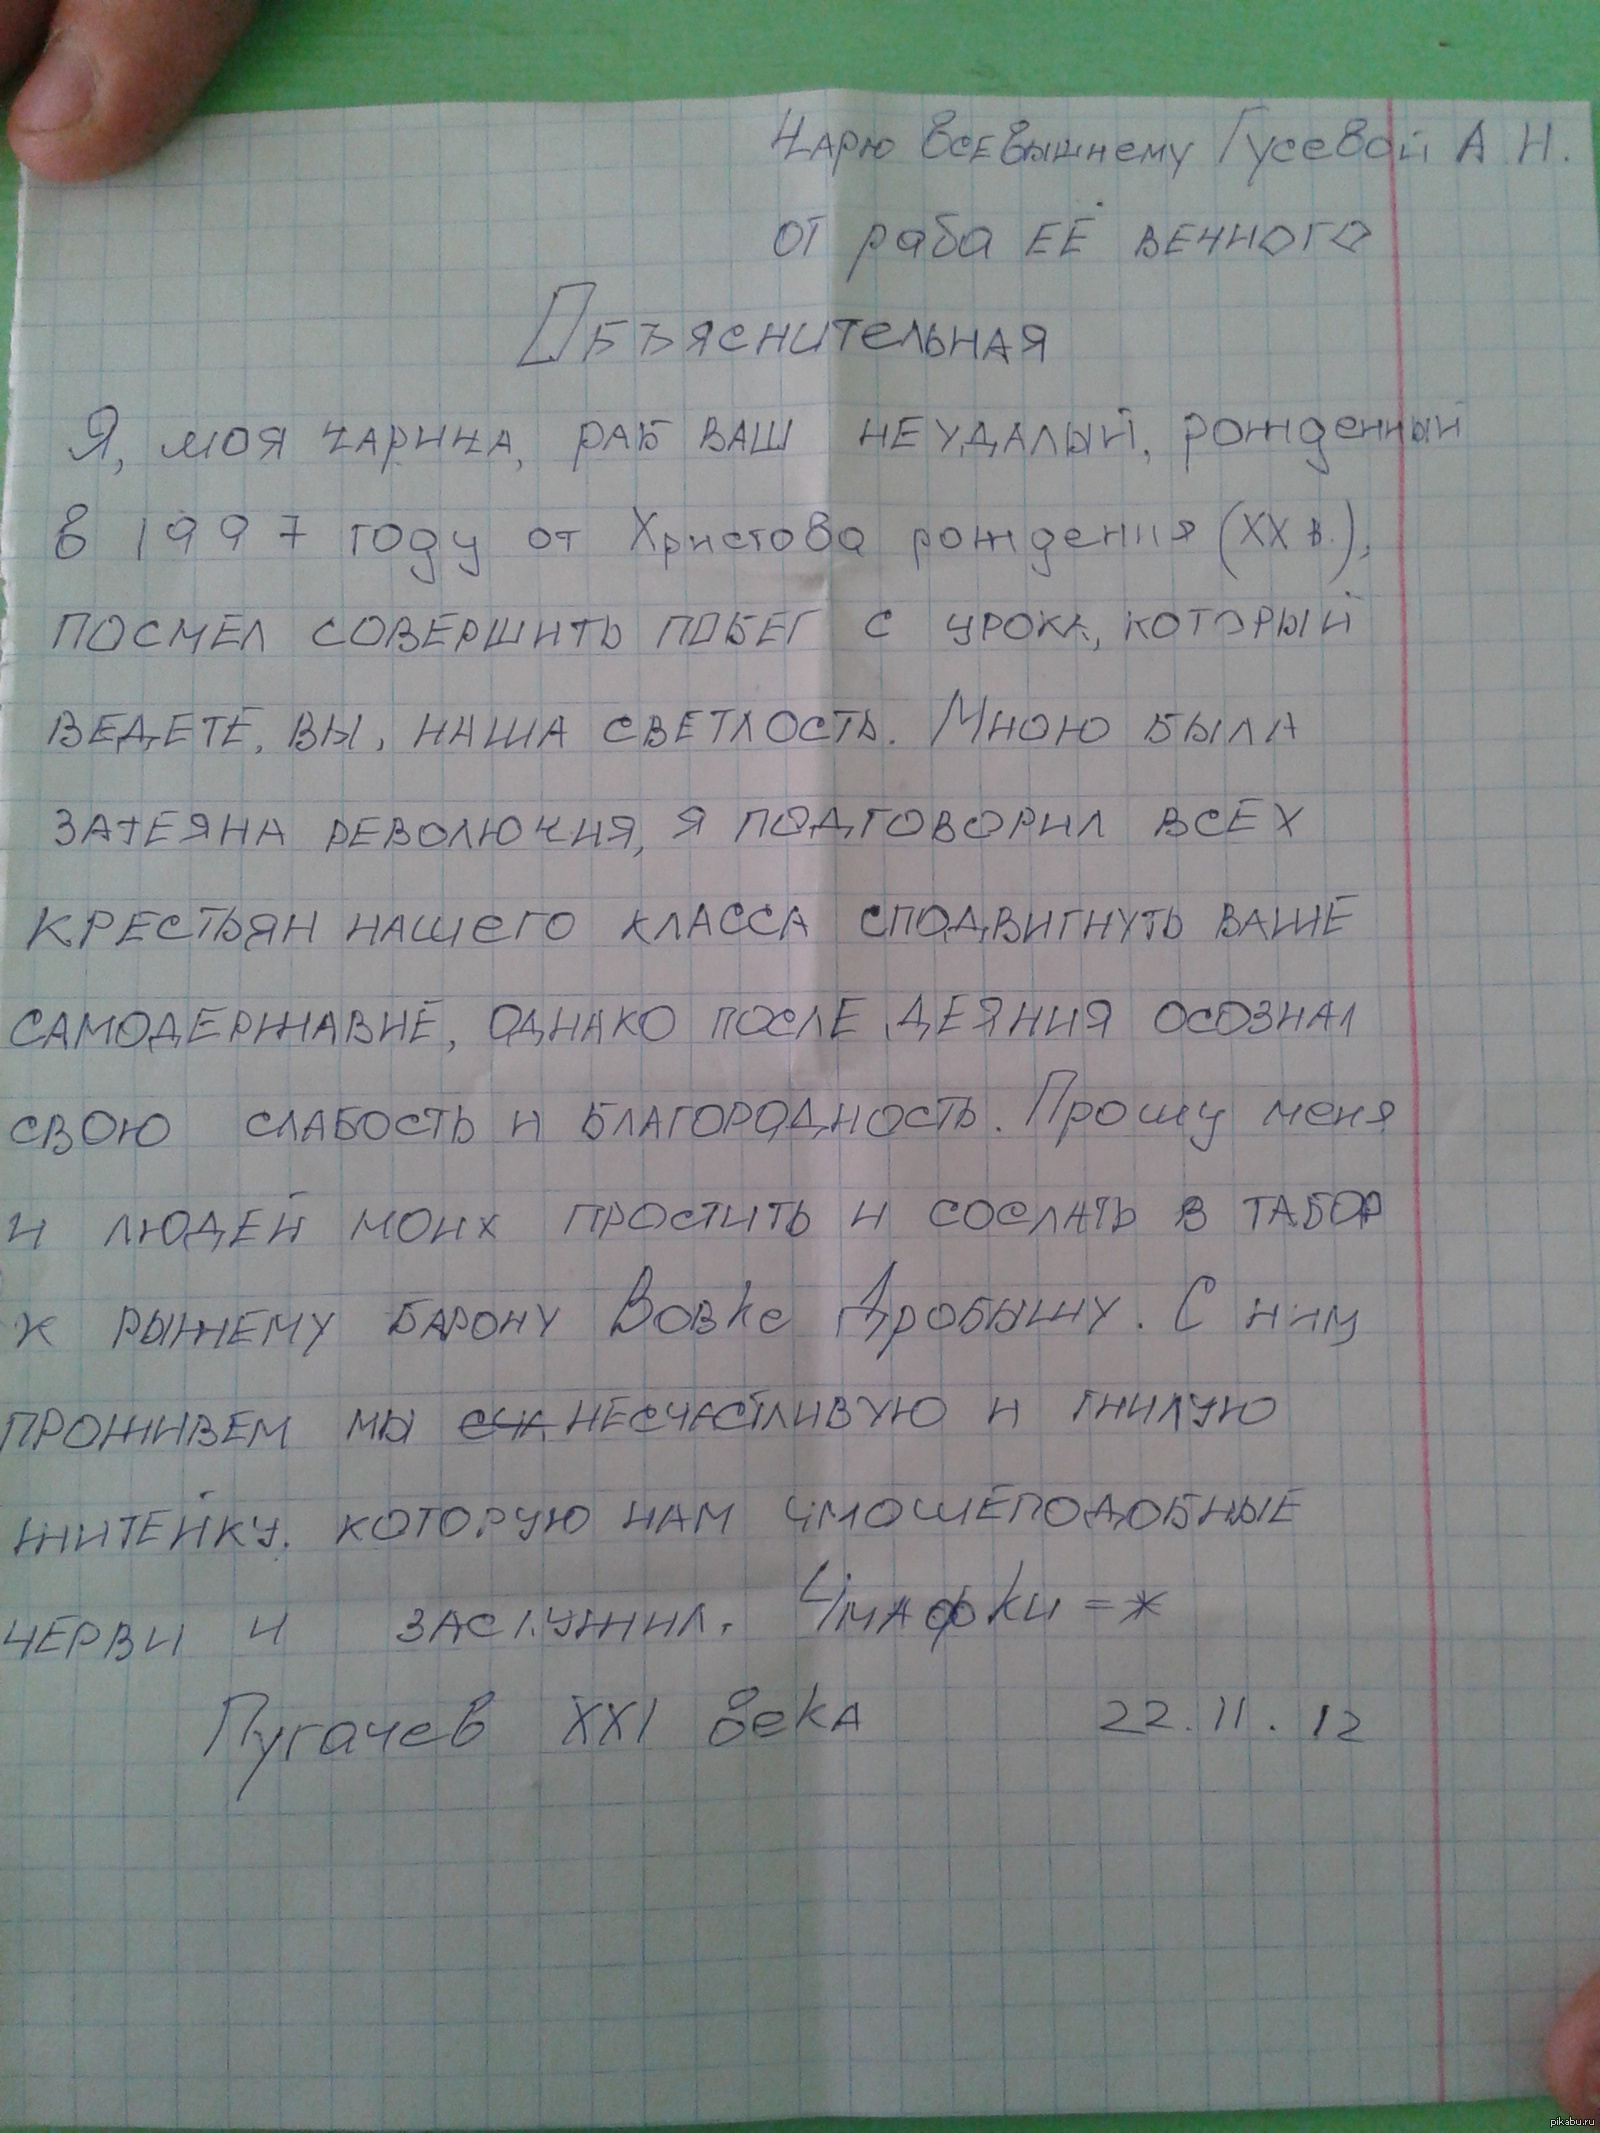 Царю всевышнему Гусевой А Н.
от раба ЕЁ вечного
Объяснительная
Я, моя царица, раб ваш неудалый, рожденный
в 1997 году от Христова рождения (XX в.),
посмел совершить побег с урока, который
ведете, вы, наша светлость. Мною была
затеяна революция, я подговорил всех
крестьян нашего класса сподвигнуть ваше
самодержавие, однако после деяния осознал
свою слабость и благородность. Прошу меня
и людей моих простить и сослать в табор
к рыжему барону Вовке Дробышу. С ним
проживем мы сча несчастливую и гнилую
житейку. которую нам чмошеподобные
черви и заслужил. Чмафки =*
Пугачев XXI века 22.11.12
pikabu.ru